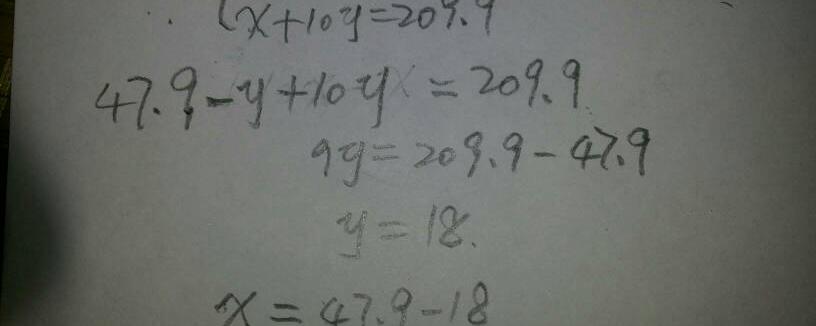 {x+10y=209.9
47.9-y+10y=209.9
9y=209.9-47.9
y=18.
x=47.9-18